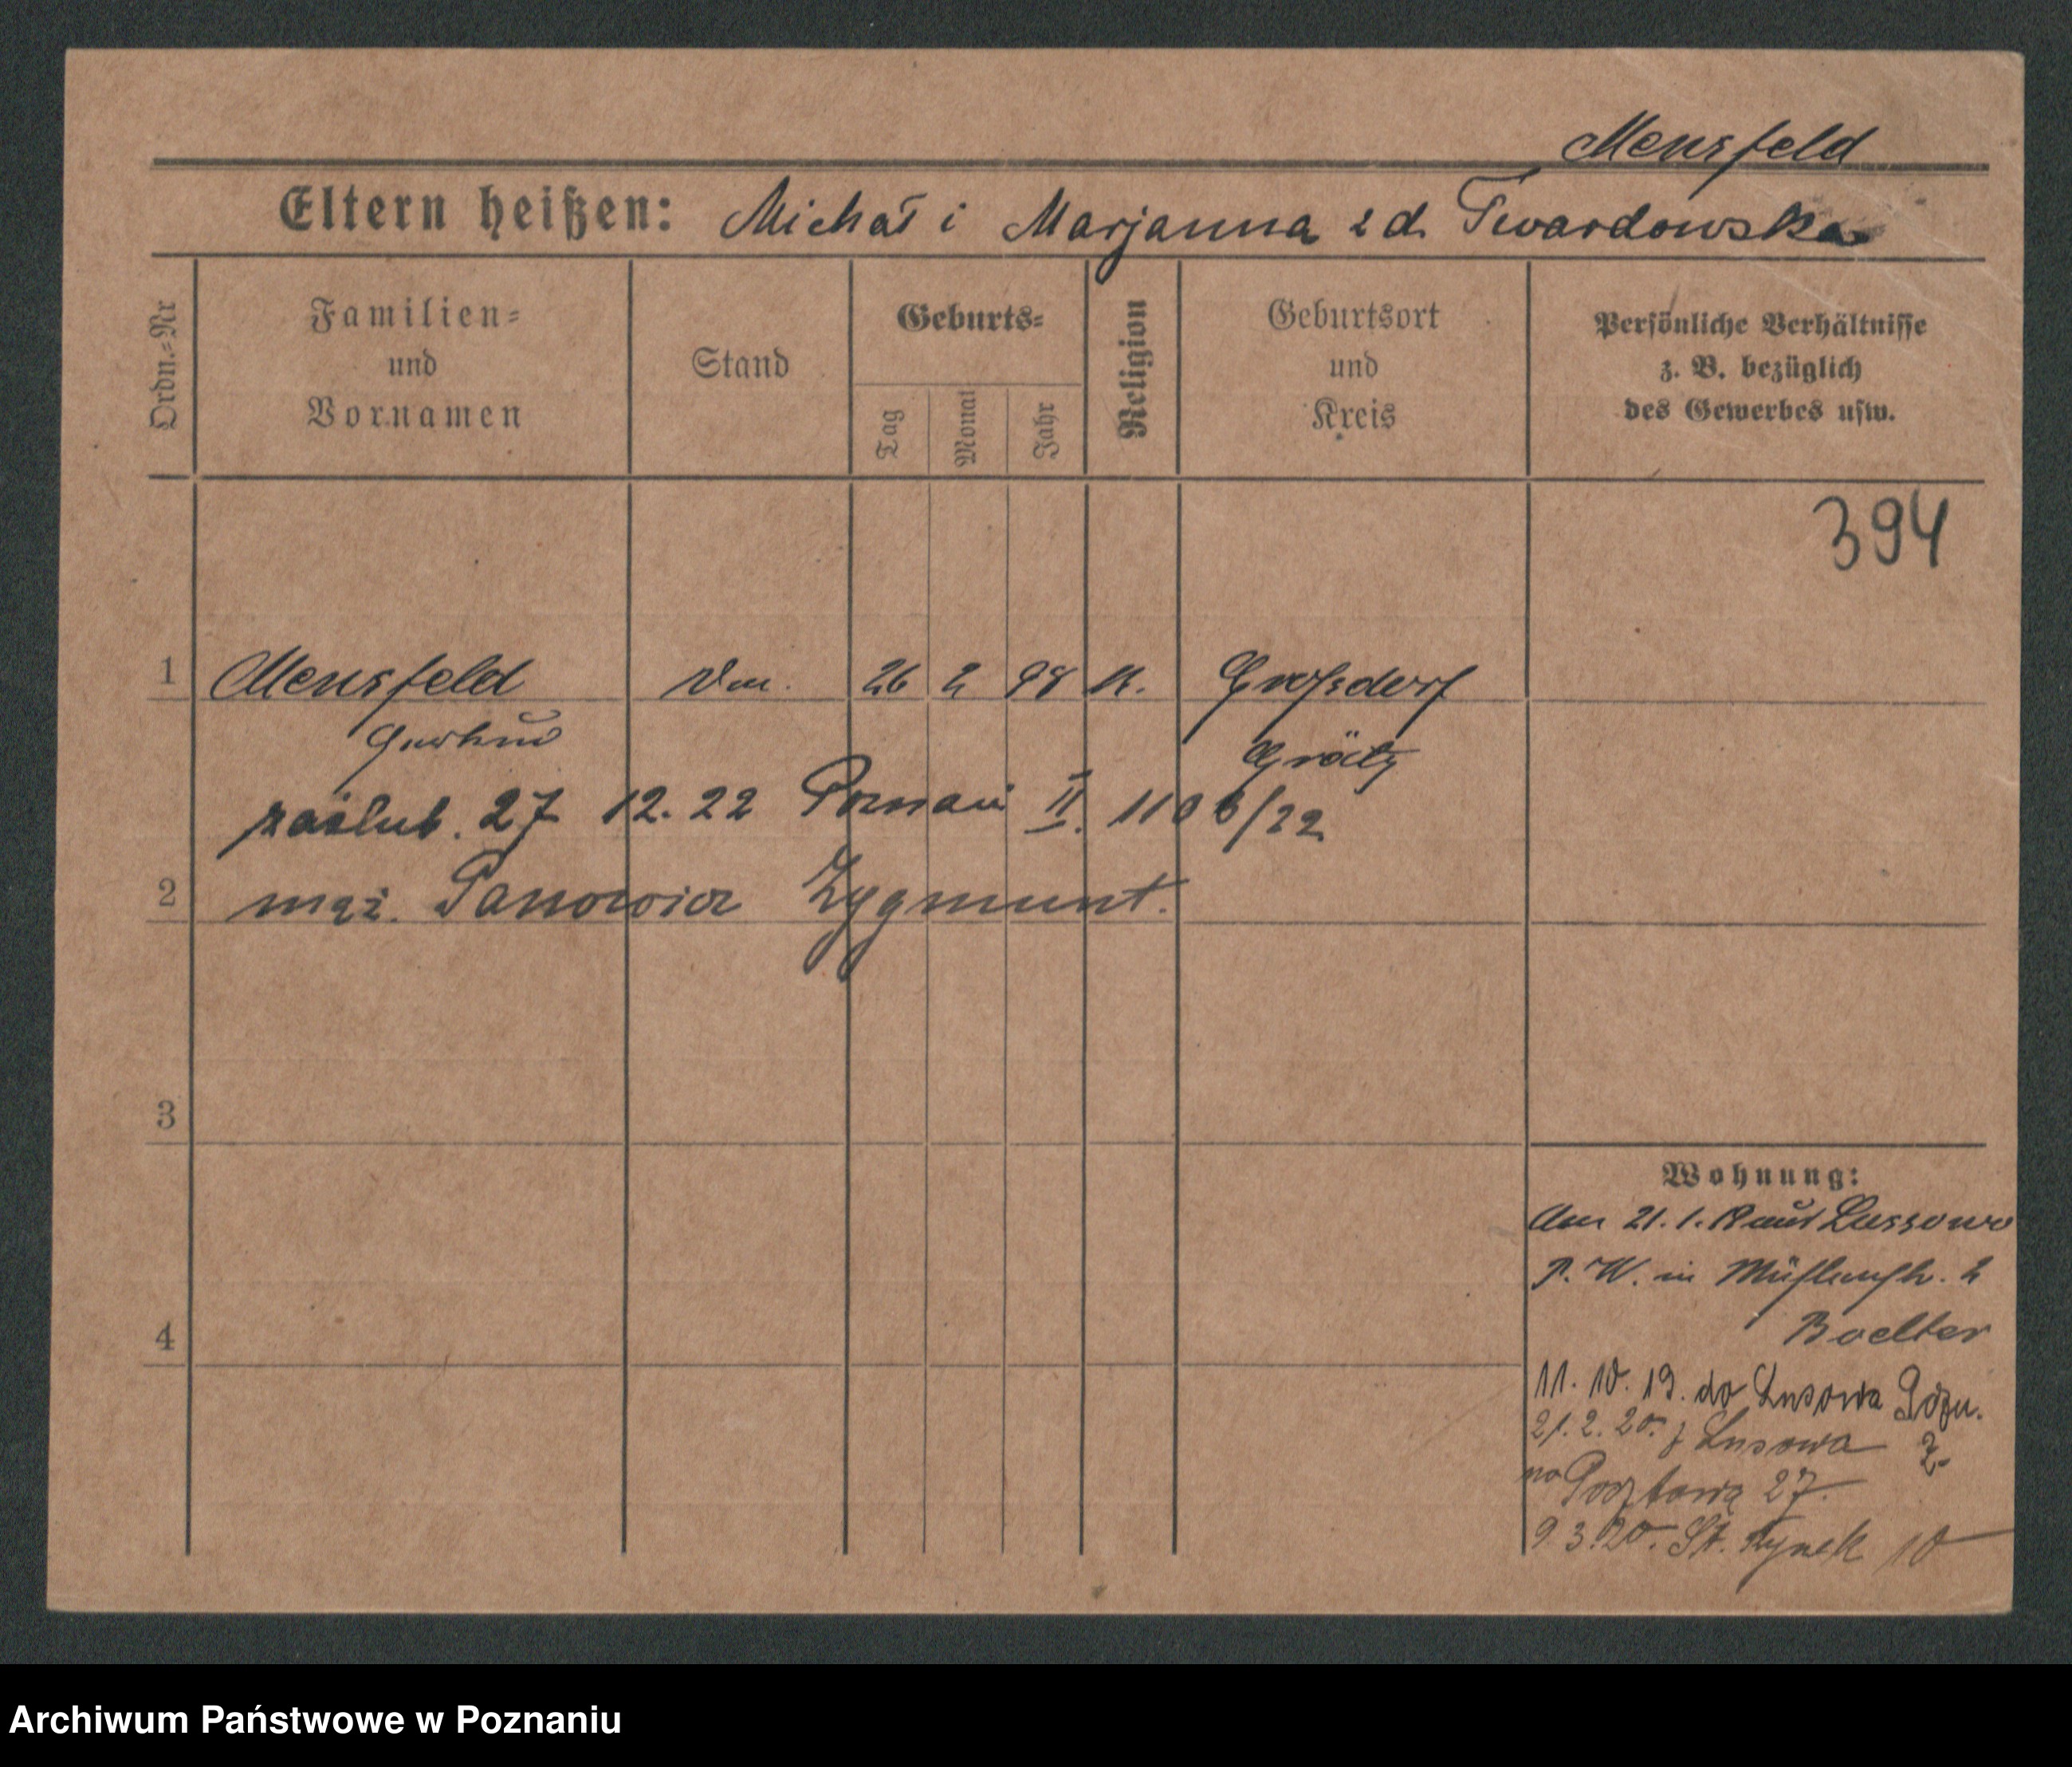 Mensfeld
Eltern heißen: Michał i Marjanna z d. Twardowska
Ordn.-Nr
Familien-
und
Vornamen
Stand
Geburts-
Tag
Monat
Jahr
Religion
Geburtsort
und
Kreis
Persönliche Verhältnisse
z. B. bezüglich
des Gewerbes usw.
394
1 Mensfeld 26 2 98 K. Großdorf
Grätz
zaślub. 27 12. 22 Poznań II. 1106/22
2 mąż. Zygmunt.
3
Wohnung:
Am 21. 1. 19 aus Lussowo
P. W. in Mühlenstr. 2
4
Boelter
11. 10. 19. do Lusowa Pozn.
21. 2. 20. z Lusowa Z.
na Pocztową 27.
9 3. 20. St. Rynek 10
Archiwum Państwowe w Poznaniu